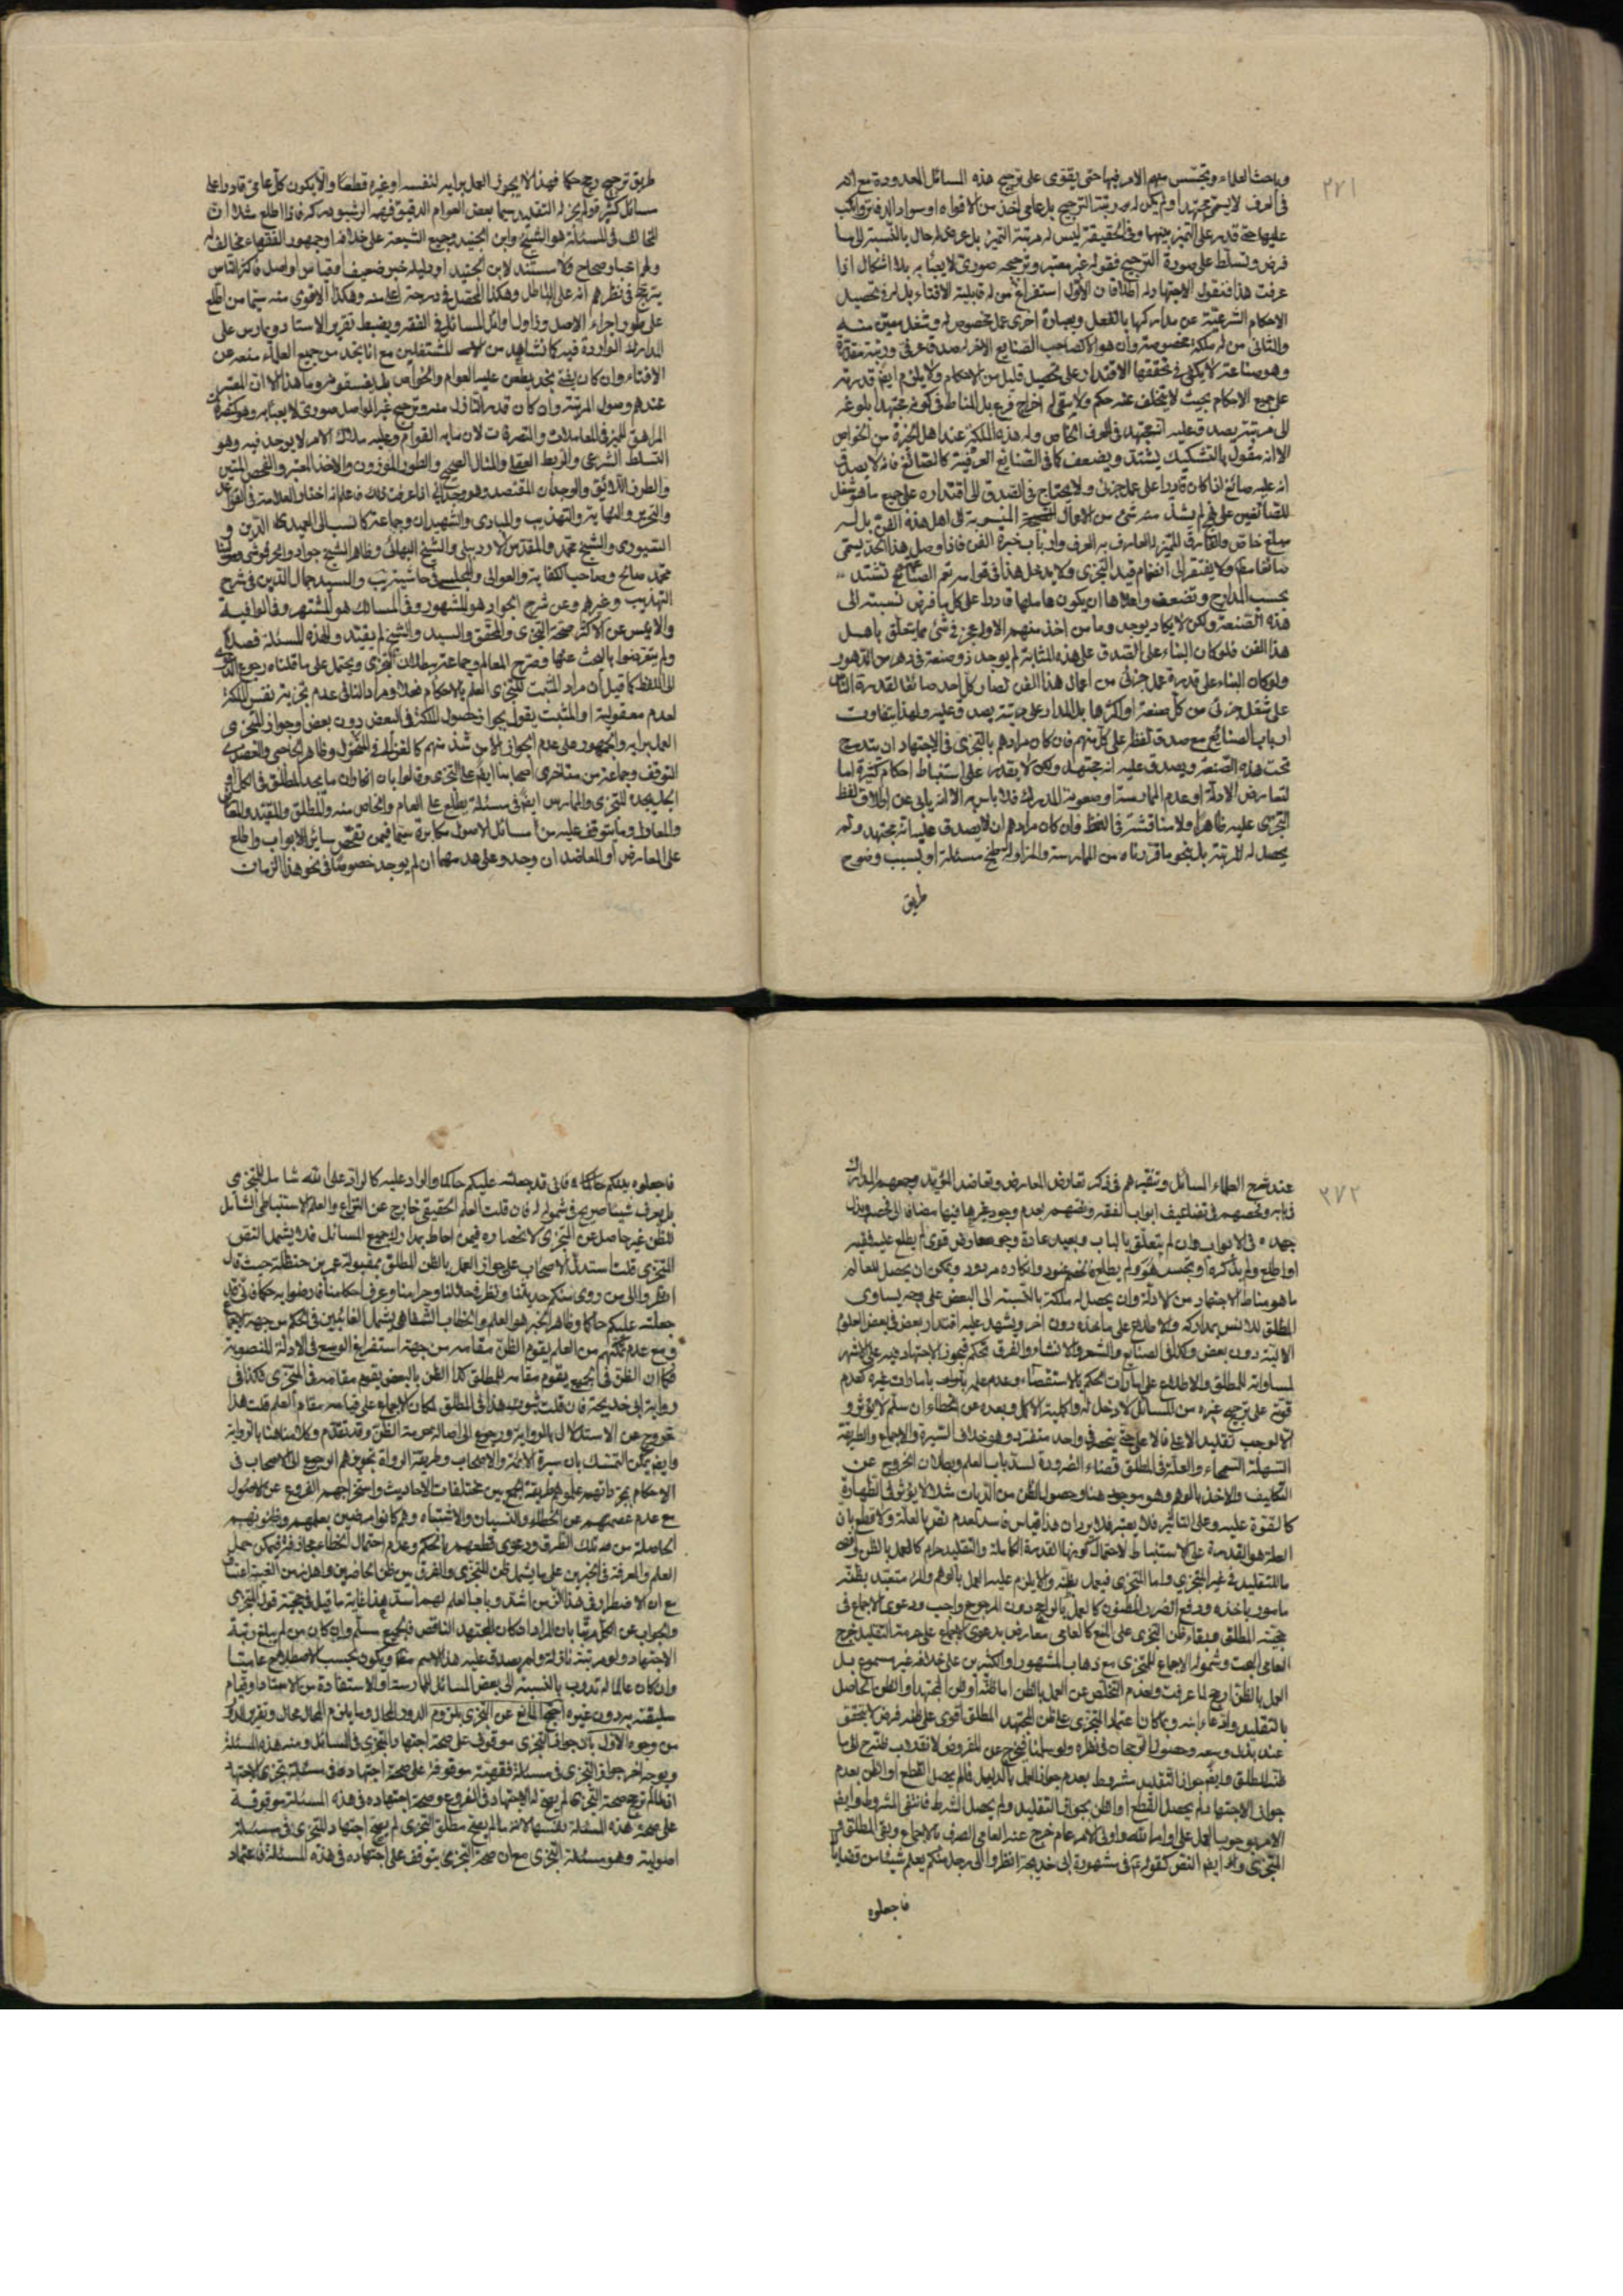 ٢٧١
وباحث العلماء وتجسس منهم الامر فيها حتى يقوى على ترجيح هذه المسائل المعدودة مع انه
فى العرف لا يسمى مجتهدا ولم يكن له مرتبة الترجيح بل عامى اخذ من الافواه او سواد الدفاتر واكب
عليها حتى قدر على التميز بينهما وفى الحقيقة ليس له مرتبة التميز بل عرض له حال بالنسبة الى ما
فرض وتسلط على صورة الترجيح فقوله غير معتبر وترجيحه صورى لا يعبا به بلا اشكال اذا
عرفت هذا فنقول الاجتهاد له اطلاقان الاول استفراغ من له قابلية الافتاء بذله فى تحصيل
الاحكام الشرعية عن مداركها بالفعل وبعبارة اخرى عمل مخصوص له وشغل معين منه
والثانى من له ملكة مخصوصة وان هو الا كصاحب الصنايع الاخر له صدق عرفى ورتبة مقدرة
وهو صناعة لا يكفى فى تحققها الاقتدار على تحصيل قليل من الاحكام ولا يلزم ايضا قدرته
على جميع الاحكام بحيث لا يتخلف عنه حكم ولا يبقى له اخراج فرع بل المناط فى كونه مجتهدا بلوغه
الى مرتبة يصدق عليه انه مجتهد فى العرف الخاص وله هذه الملكة عند اهل الخبرة من الخواص
الا انه مقول بالتشكيك يشتد ويضعف كما فى الصنايع العرفية كالصائغ فانه لا يصدق
انه عليه صائغ اذا كان قادرا على عمل جزئى ولا يحتاج فى الصدق الى اقتداره على جميع ما هو شغل
للصائغين على نهج لم يشذ منه شئ من الاحوال المنسوبة الى اهل هذه الفن بل له
مبلغ خاص والفارق المميز له العارف به العرف وارباب خبرة الفن فاذا وصل هذا الحد يسمى
صائغا مطلقا ولا يفتقر الى انضمام قيد التجزى ولا يدخل هذا فى قوامه نعم الصنائع تشتد
بحسب المدارج وتضعف واعلاها ان يكون حاملها قادرا على كل ما فرض نسبته الى
هذه الصنعة ولكن لا يكاد يوجد وما من اخذ منهم الا وله عجز فى شئ مما يتعلق باهل
هذا الفن فلو كان البناء على الصدق على هذه المثابة لم يوجد ذو صنعة فى دهر من الدهور
ولو كان البناء على قدرة عمل جزئى من اعمال هذا الفن لصار كل احد صائغا لقدرة الناس
على شغل جزئى من كل صنعة او اكثرها بل المدار على مرتبة يصدق عليه ولهذا يتفاوت
ارباب الصنايع مع صدق اللفظ على كل منهم فان كان مرادهم بالتجزى فى الاجتهاد ان يندرج
تحت هذه الصنعة ويصدق عليه انه مجتهد ولكن لا يقدر على استنباط احكام كثيرة اما
لتعارض الادلة او عدم الممارسة او صعوبة المدرك فلا باس به الا انه يابى عن اطلاق لفظ
التجزى عليه ظاهرا ولا مناقشة فى اللفظ وان كان مرادهم ان لا يصدق عليه انه مجتهد ولم
يحصل له المرتبة بل بنحو ما قررناه من الممارسة والمزاولة مسئلة او بسبب وضوح
طريق
طريق ترجيح رجح حكما فهذا لا يجوز العمل برايه لنفسه او غيره قطعا والا يكون كل عامى قادرا على
مسائل كثيرة ولم يجز له التقليد سيما بعض العوام الدقيق فهمه فاذا اطلع مثلا ان
المخالف فى المسئلة هو الشيخ وابن الجنيد وجميع الشيعة على خلافه او جمهور الفقهاء مخالف له
ولهم اخبار صحاح ولا مستند لابن الجنيد او دليله خبر ضعيف او قياس او اصل فاكثر الناس
يترجح فى نظرهم انه على الباطل وهكذا المحصل فى درجة اعلا منه وهكذا الاقوى منه سيما من اطلع
على طور اجراء الاصل وزاول اوائل المسائل فى الفقه ويضبط تقرير الاستاد ويمارس على
المدارك الواردة فيه كما نشاهد من للمشتغلين مع انا نجد من جميع العلماء منعه عن
الافتاء وان كان يفتى نجد يطعن عليه العوام والخواص بل يفسقونه وما هذا الا ان المعتبر
عندهم وصول المرتبة وان كان قدر النازل منه وترجيح غير الواصل صورى لا يعبا به وهو كنصرف
المراهق المميز فى المعاملات والتصرفات لان ما به القوام وعليه ملاك الامر لا يوجد فيه وهو
التسلط الشرعى والربط العقلى والمثال الصحيح والطور الموزون والاخذ المعتبر والفحص المتين
والطرف اللائق والوجدان المقتصد وهو وجدانى اذا عرفت ذلك فاعلم انه اختار العلامة فى القواعد
والتحرير والنهاية والتهذيب والمبادى والشهيدان وجماعة كما نسب الى العميدى الدين و
السيورى والشيخ محمد والمقدس الاردبيلى والشيخ البهائى وظاهر الشيخ جواد
محمد صالح وصاحب الكفاية والعوالى والمجلسى فى حاشيته يب والسيد جمال الدين فى شرح
التهذيب وغيرهم وعن شرح الجواد هو المشهور وفى المسالك هو المشتهر وفى الوافية
والانيس عن الاكثر صحة التجزى والمحقق والسيد والشيخ لم يقيد ولهذه المسئلة فصلا
ولم يتعرضوا بالبحث عنها وصرح المعالم وجماعة ببطلان التجزى ويحتمل على ما قلناه رجوع النزاع
الى اللفظ كما قيل ان مراد المثبت للتجزى العلم بالاحكام فعلا ومراد النافى عدم تجزية نفس الملكة
لعدم معقولية او المثبت يقول بجواز حصول الملكة فى البعض دون بعض او جواز للتجزى
العمل برايه والجمهور على عدم الجواز الا من شذ منهم كالغزالى فى المنخول وظاهر الحاجبى والعضدى
التوقف وجماعة من متاخرى اصحابنا ايضا على التجزى
التجزى والممارس ايضا فى مسئلة يطلع على العام والخاص منه والمطلق والمقيد
والمعادل وما يتوقف عليه من مسائل الاصول مكابرة سيما فيمن تفحص سائر الابواب واطلع
على المعارض او المعاضد ان وجد وعلى هدمهما ان لم يوجد خصوصا فى نحو هذا الزمان
٢٧٢
عند شرح العلماء المسائل وتنقيدهم فى ذكر تعارض المعارض وتعاضد المؤيد وجمعهم المدارك
فى بابه وفحصهم فى تضاعيف ابواب الفقه ونصهم بعدم وجود غيرها فيها مضافا الى فحصه وبذل
جهده فى الابواب وان لم يتعلق بالباب وبعيد عادة وجود معارض قوى لم يطلع عليه فقيه
او اطلع ولم يذكره او تجسس هو ولم يطلع وانكاره مردود ويمكن ان يحصل للعالم
ما هو مناط الاجتهاد من الادلة وان يحصل له ملكة بالنسبة الى البعض على وجه يساوى
المطلق للانس بمداركه والاطلاع على ماخذه دون اخر ويشهد عليه اقتدار بعض فى بعض العلوم
الالية دون بعض وكذا فى الصنايع والشعر والانشاء والفرق تحكم فيجوز الاجتهاد فيه على الاشهر
لمساواته المطلق والاطلاع على امارات الحكم بالاستقصاء وعدم علمه بامارات غيره كعدم
قوته على ترجيح غيره من المسائل لا دخل له واكملية الاكمل وبعده عن الخطاء ان سلم لا يؤثر و
الا لوجب تقليد الاعلم فالاعلم حتى ينحصر فى واحد منفرد وهو خلاف السيرة والاجماع والطريقة
السهلة السمحاء والعلة فى المطلق قضاء الضرورة لسد باب العلم وبطلان الخروج عن
التكليف والاخذ بالوهم وهو موجود هنا وحصول الظن من الديات مثلا لا يؤثر فى الطهارة
كما لقوة عليه وعلى التاثير فلا يعتبر فلا يرد ان هذا قياس فاسد لعدم نص بالعلة ولا قطع بان
العلة هو القدرة على الاستنباط لاحتمال كونها القدرة الكاملة والتقليد حرام كالعمل بالظن
ما للتقليد فى غير المتجزى واما المتجزى فيعمل بظنه والا يلزم عليه العمل بالوهم والمرء متعبد بظنه
مامور باخذه ودفع الضرر المظنون كالعمل بالراجح دون المرجوح واجب ودعوى الاجماع فى
حجية المطلق وبقاء ظن التجزى على المنع كالعامى معارض بدعوى الاجماع على حرمة التقليد خرج
العامى البحت وشموله الاجماع للمتجزى مع ذهاب المشهور او اكثرين على خلافه غير مسموع بل
العمل بالظن ارجح لما عرفت ولعدم التخلص عن العمل بالظن اما ظنه او ظن المجتهد والظن الحاصل
بالتقليد وادعاء انه ربما كان اعتماد المتجزى على ظن المجتهد المطلق اقوى على ظنه فرض لا يتحقق
عند بذل وسعه وحصول الرجحان فى نظره ولو سلمنا فيخرج عن المفروض لانقلاب ظنه الى ما
ظنه المطلق وايضا جواز التقليد مشروط بعدم جواز العمل بالدليل فلم يحصل القطع او الظن بعدم
جواز الاجتهاد ولم يحصل القطع او الظن بجواز التقليد ولم يحصل الشرط فانتفى المشروط وايضا
الامر بوجوب العمل على اوامر الله واولى الامر عام خرج عنه العامى الصرف بالاجماع وبقى المطلق و
المتجزى ايضا النص كقوله ع فى مشهورة ابى خديجة انظروا الى رجل منكم يعلم شيئا من قضايانا
فاجعلوه
فاجعلوه بينكم حاكما فانى قد جعلته عليكم حاكما والراد عليه كالراد على الله شامل للتجزى
بل يعرف شيئا صريح فى شموله له فان قلت العلم الحقيقى خارج عن النزاع والعلم الاستنباطى الشامل
للظن غير حاصل عن المتجزى لانحصاره فيمن احاط بمدارك جميع المسائل فلا يشمل النص
المتجزى قلت استدل الاصحاب على جواز العمل بالظن المطلق بمقبولة عمر بن حنظلة حيث قال
انظروا الى من روى منكم حديثنا ونظر فى حلالنا وحرامنا وعرف احكامنا فارضوا به حكما فانى قد
جعلته عليكم حاكما وظاهر الخبر هو العلم والخطاب الشفاهى يشمل الغائبين فى الحكم من جهة الاجماع
ومع عدم تمكنهم من العلم يقوم الظن مقامه من جهة استفراغ الوسع فى الادلة المنصوبة
فكما ان الظن فى الجميع يقوم مقامه للمطلق كذا الظن بالبعض يقوم مقامه فى المتجزى فكذا فى
رواية ابى خديجة فان قلت ثبوت هذا فى المطلق لمكان الاجماع على قيامه مقام العلم قلت هذا
خروج عن الاستدلال بالرواية ورجوع الى اصالة حرمة الظن وقد تقدم وكلامنا هنا بالرواية
وايضا يمكن التمسك بان سيرة الائمة والاصحاب وطريقة الرواة تجويزهم الرجوع الى الاصحاب فى
الاحكام بجزئاتهم على طريقة الجمع بين مختلفات الاحاديث واستخراجهم الفروع عن الاصول
مع عدم عصمتهم عن الخطاء والنسيان والاشتباه وهم كانوا مرضين بعلمهم وظنونهم
الحاصلة من تلك الطرق ودعوى قطعهم بالحكم وعدم احتمال الخطاء مجازفة فيمكن حمل
العلم والمعرفة فى الخبرين على ما يشمل ظن المتجزى والفرق بين ظن الحاضرين واهل زمن الغيبة اعتساف
مع ان الاضطرار فى هذا الزمن اشد وباب العلم لهم اسد هذا غاية ما قيل فى حجية قول المتجزى
والجواب عن الكل بان المراد اذا كان المجتهد الناقص فالجميع مسلم وان كان من لم يبلغ رتبة
الاجتهاد ولو مرتبة نازلة ولم يصدق عليه هذا الاسم ويكون بحسب الاصطلاح عاميا
وان كان عالما له تدرب بالنسبة الى بعض المسائل للممارسة او الاستفادة من الاستاد او قيام
سليقته به دون غيره احتج المانع عن التجزى بلزوم الدور المحال وما يلزم المحال محال وتقرير الدور
من وجوه الاول ان جواز التجزى موقوف على صحة اجتهاد المتجزى فى المسائل ومنه هذه المسئلة
وبوجه اخر جواز التجزى فى مسئلة فقهية موقوفة على صحة اجتهاده فى مسئلة تجزى الاجتهاد
اذ ما لم يرجح صحة التجزى لم يصح له الاجتهاد فى الفروع وصحة اجتهاده فى هذه المسئلة موقوفة
على صحة هذه المسئلة نفسها لانه ما لم يصح مطلق التجزى لم يصح اجتهاد المتجزى فى مسئلة
اصولية وهو مسئلة التجزى مع ان صحة التجزى يتوقف على اجتهاده فى هذه المسئلة فاعتماد